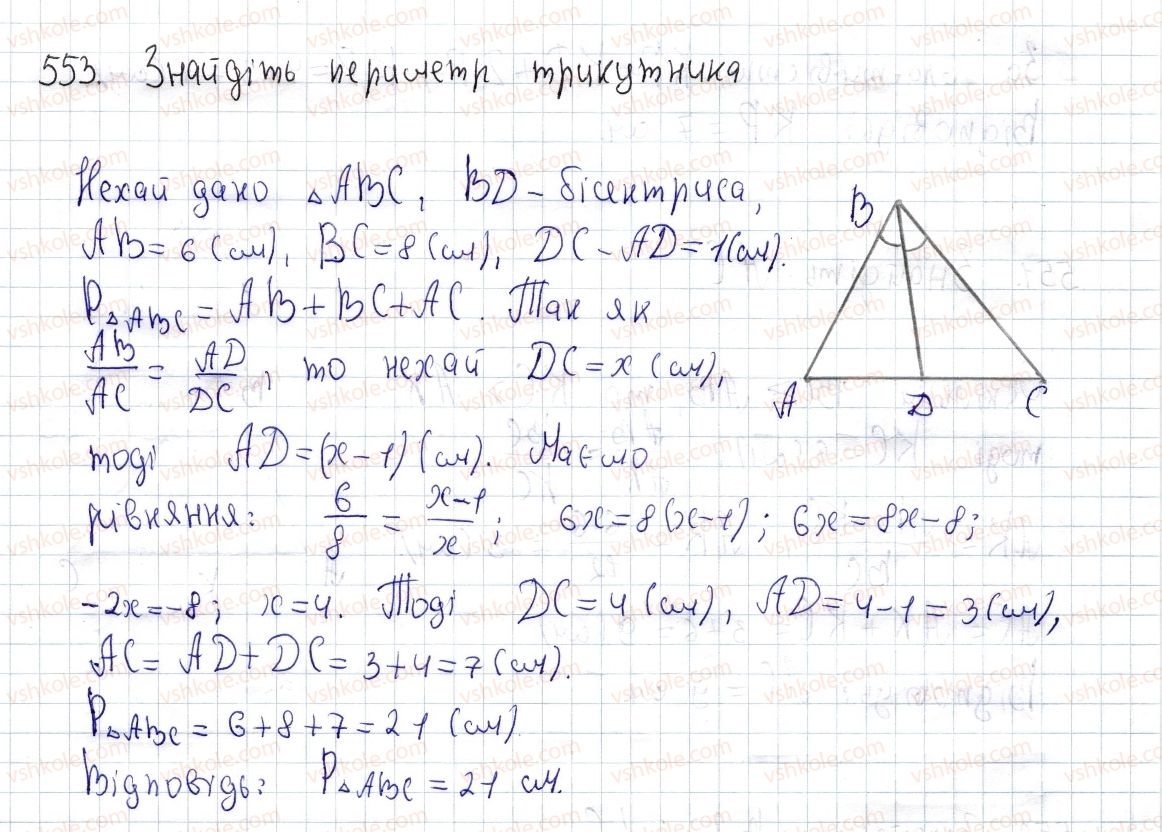 553. Знайдіть периметр трикутника
Нехай дано △ABC, BD – бісектриса,
AB = 6 (см), BC = 8 (см), DC – AD = 1 (см).
P△ABC = AB + BC + AC. Так як
AB/AC = AD/DC, то нехай DC = x (см),
тоді AD = (x – 1) (см). Маємо
рівняння: 6/8 = x–1/x; 6x = 8(x–1); 6x = 8x – 8;
-2x = -8; x = 4. Тоді DC = 4 (см), AD = 4 – 1 = 3 (см),
AC = AD + DC = 3 + 4 = 7 (см).
P△ABC = 6 + 8 + 7 = 21 (см).
Відповідь: P△ABC = 21 см.
B
A D C
vshkole.com